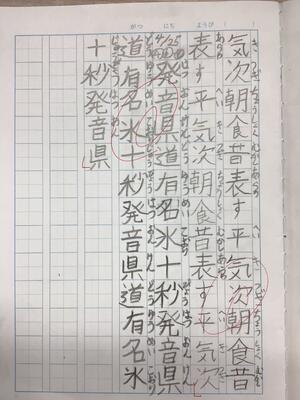 がつ にち ようび ( )
気次朝食昔表す平気次朝食昔
表す平気次朝食昔表す平気次
4/25
発音県道有名氷十秒発音県
道有名氷十秒発音県道有名氷
十秒発音県